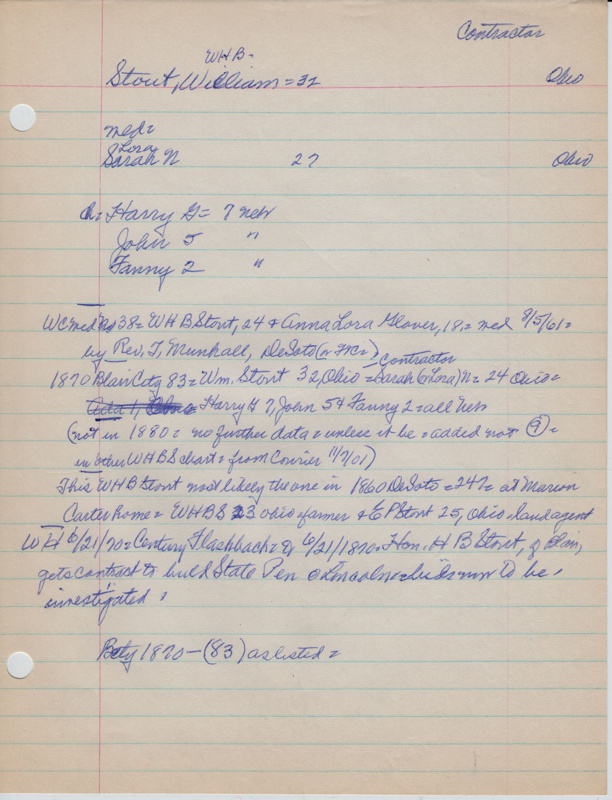 Contractor
WHB-
Stout, William = 32 Ohio
med=
Lora
Sarah N 27 Ohio
Ch= Harry G= 7 neb
John 5 "
Fanny 2 "
WC med No 38= WHB Stout, 24 & Anna Lora Glover, 18,= med 8/5/61=
by Rev. T. Munhall, DeSoto (or FtC=)
Contractor
1870 Blair City 83= Wm. Stout 32, Ohio = Sarah (or Lora) N= 24 Ohio=
Ada 1, Harry G 7, John 5 & Fanny 2 = all neb
(not in 1880= no further data= unless it be= added not 9=
in other WHBS chart= from Courier 11/7/01)
This WHB Stout most likely the one in 1860 DeSoto = 247= at Marion
Carter home= WHBS 23 Ohio farmer & EP Stout 25, Ohio land agent
WH 6/21/70= Century Flashback= of 6/21/1870= Hon. H B Stout, of Blair,
gets contract to build State Pen @ Lincoln= bids now to be,
investigated=
B city 1870 - (83) as listed=